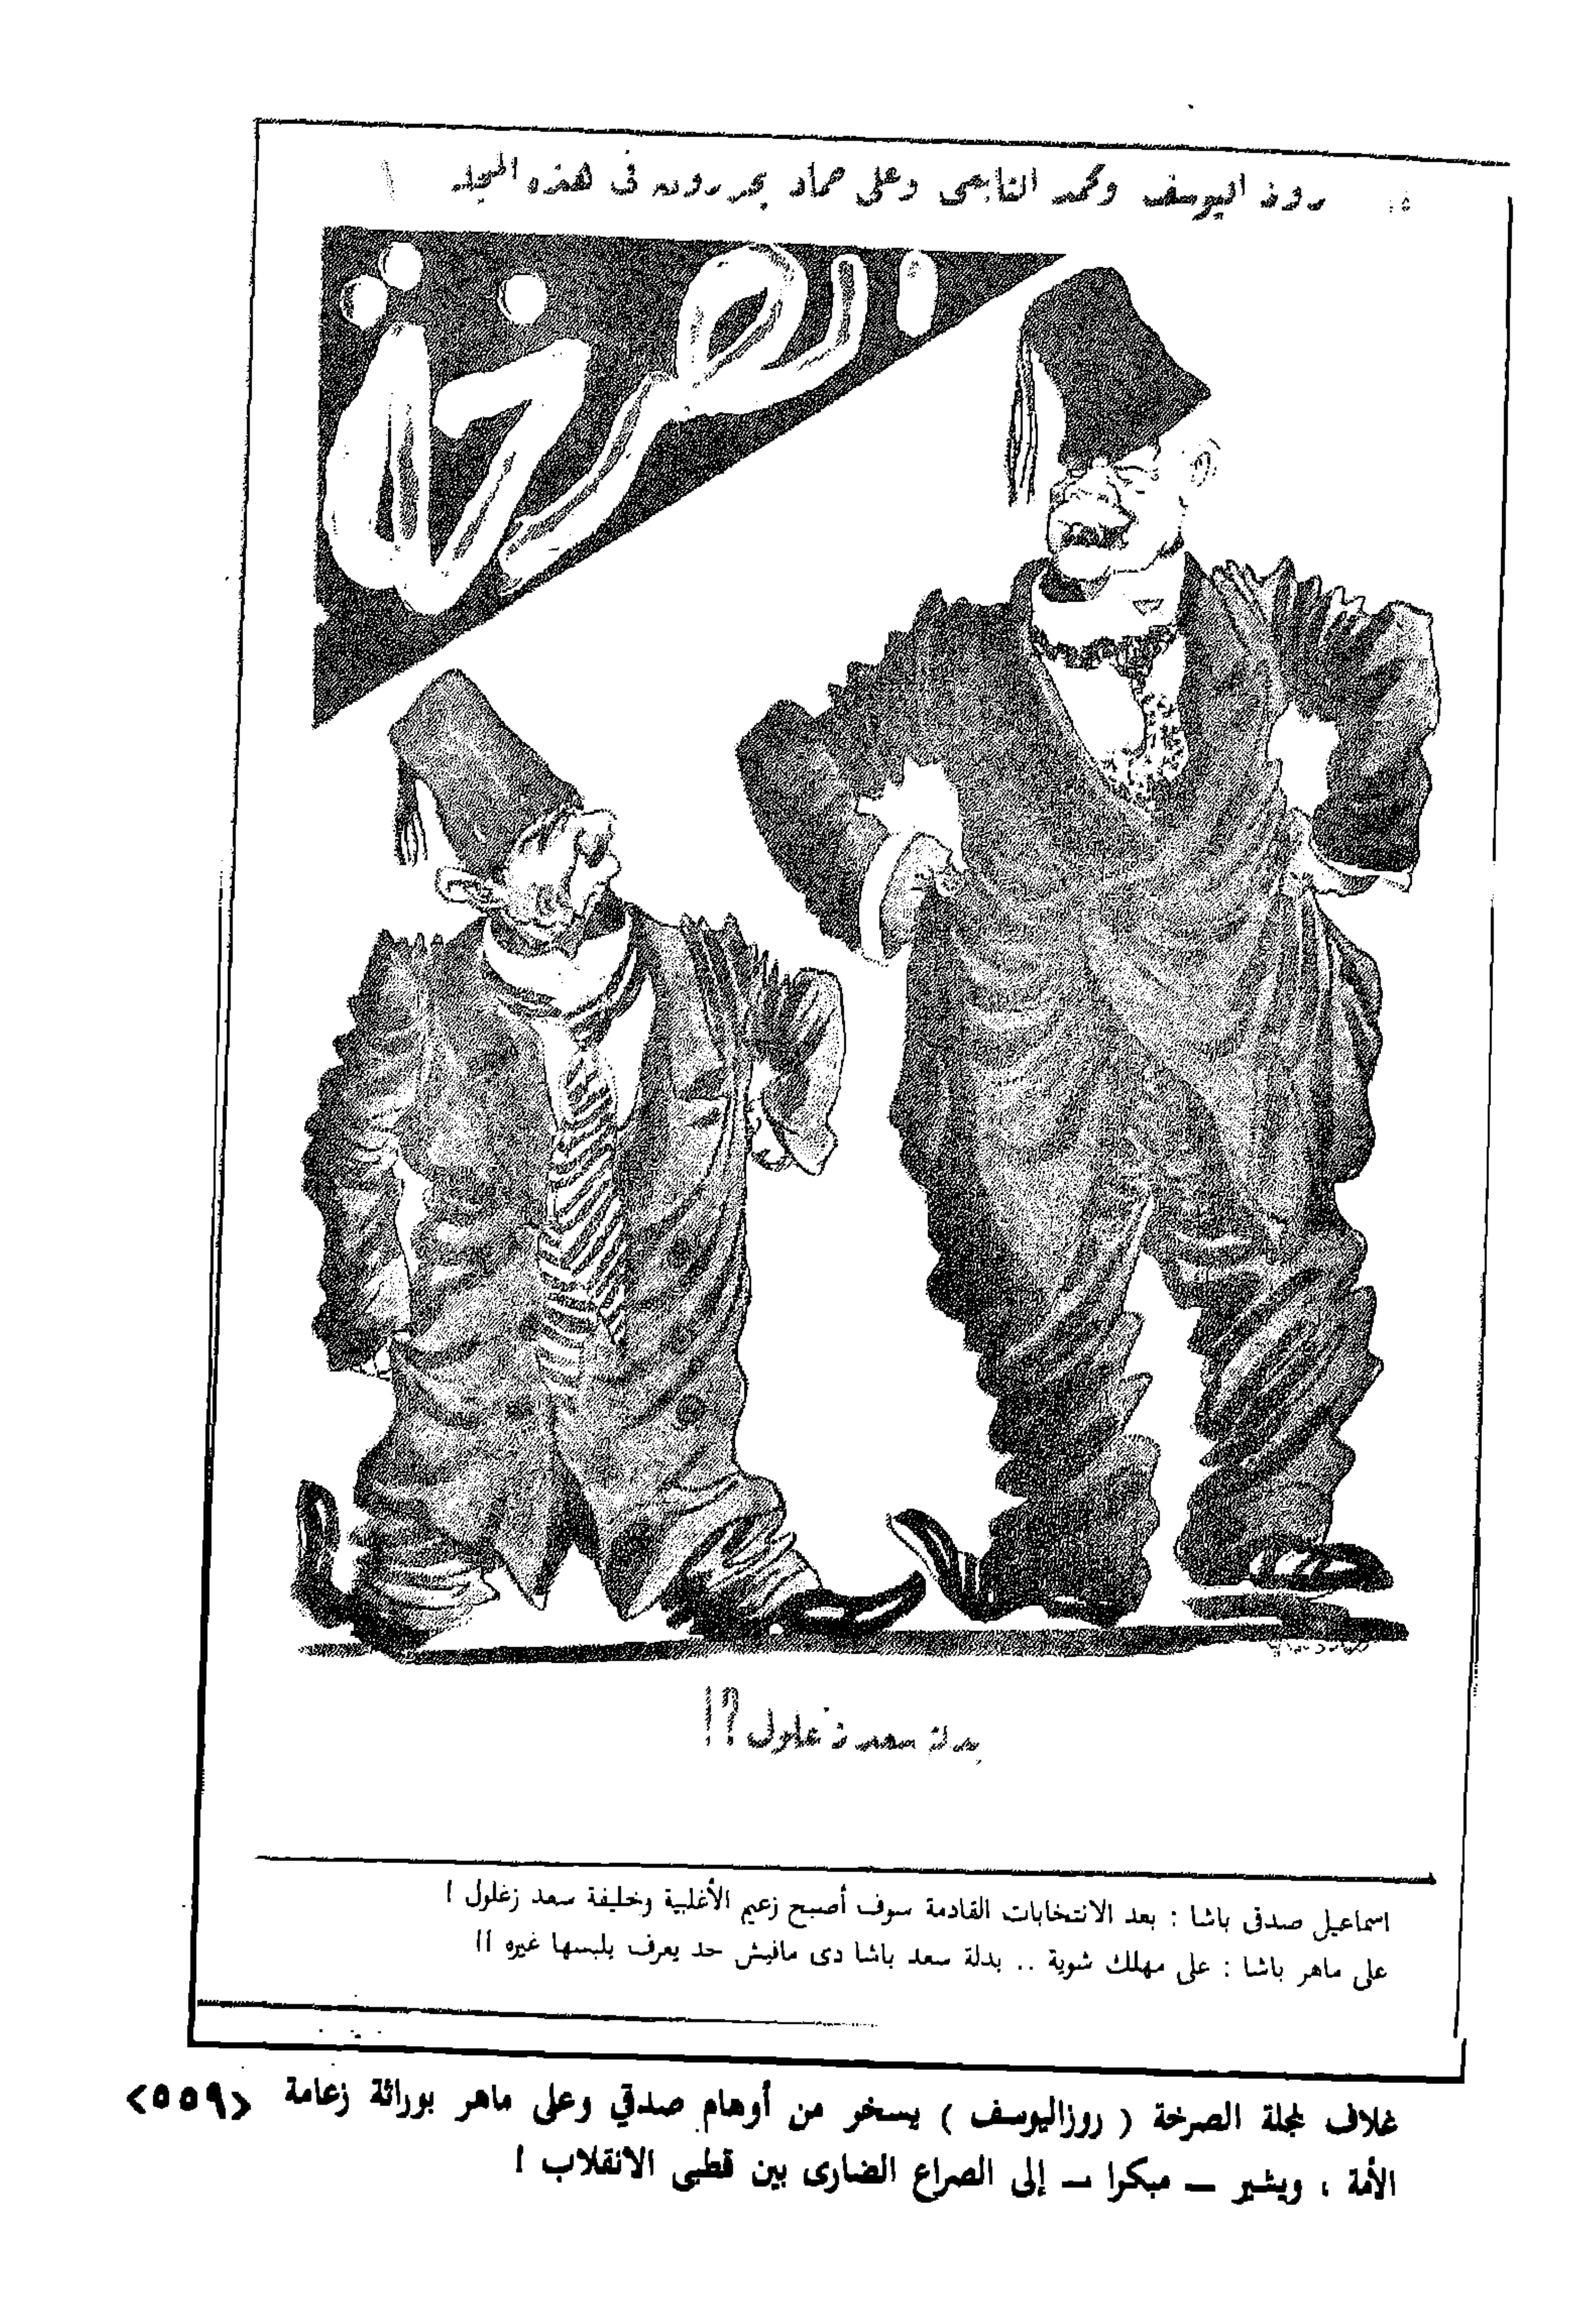 روز اليوسف ومحمد التابعى وعلى حماد يحررون فى هذه المجلة
الصرخة
بدلة سعد زغلول ؟!
اسماعيل صدقى باشا : بعد الانتخابات القادمة سوف أصبح زعيم الأغلبية وخليفة سعد زغلول !
على ماهر باشا : على مهلك شوية .. بدلة سعد باشا دى مافيش حد يعرف يلبسها غيره !!
غلاف لمجلة الصرخة ( روزاليوسف ) يسخر من أوهام صدقي وعلى ماهر بوراثة زعامة
الأمة ، ويشير — مبكرا — إلى الصراع الضارى بين قطبى الانقلاب !
<٥٥٩>